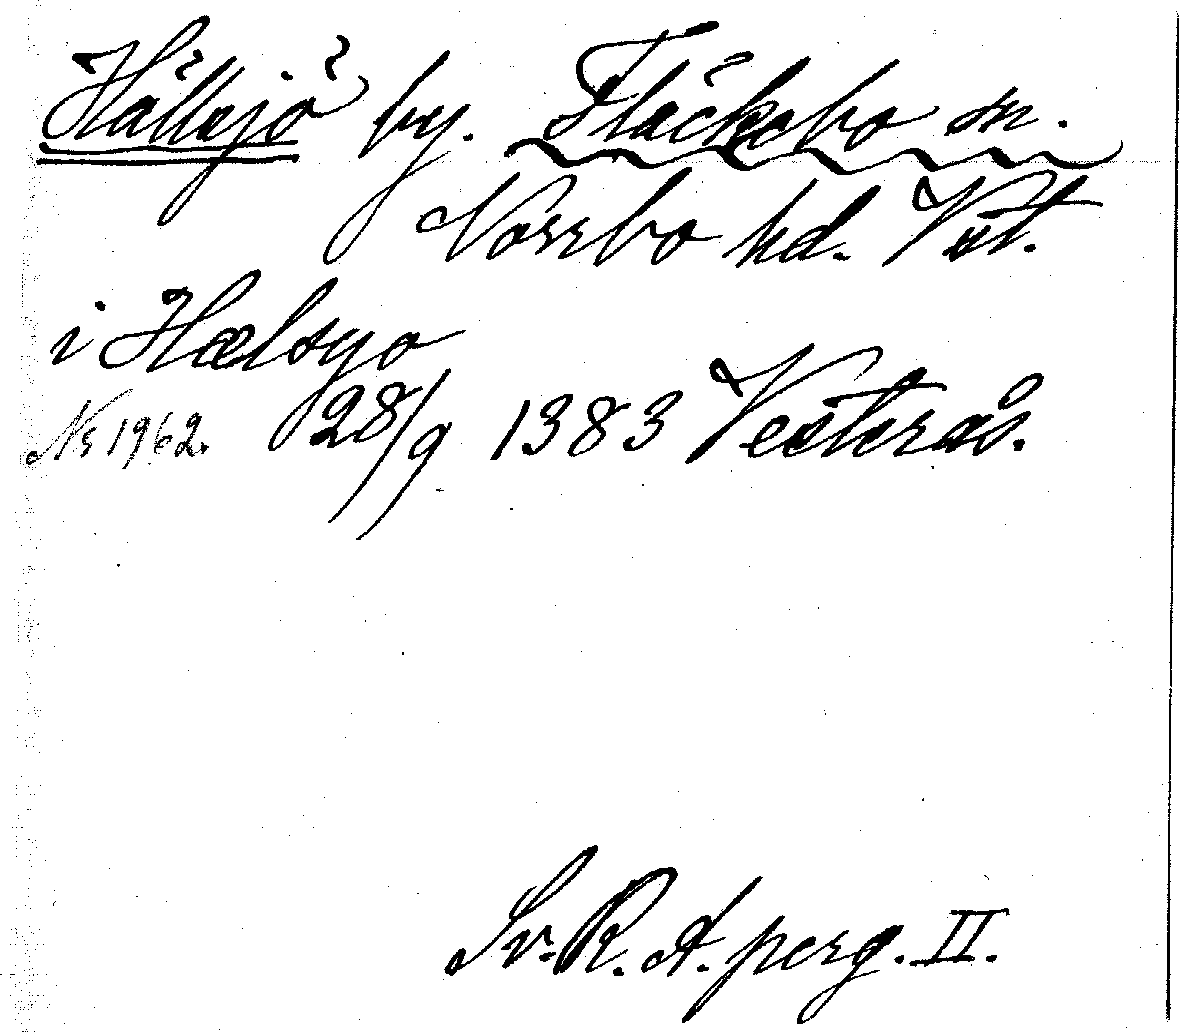 Hällsjö by. Fläckebo sn.
Norrbo hd. Vstl.
i Hælsyo
Nr 1962. 28/9 1383 Vesterås.
Sv. R. A. perg. II.